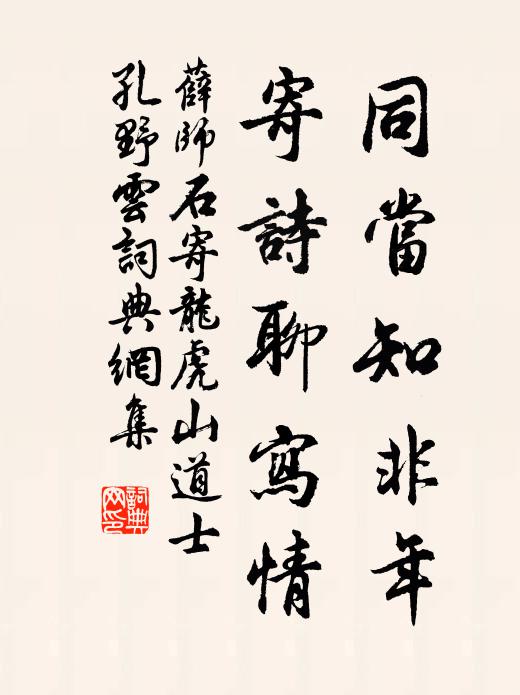 同當知非年
寄詩聊寫情
薛師石寄龍虎山道士
孔野雲詞典網集
詞典
网印